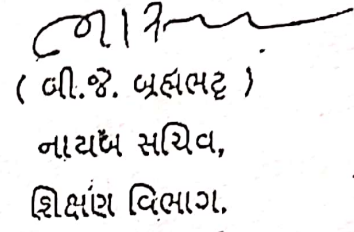 ( બી.જે. બ્રહ્મભટ્ટ )
નાયબ સચિવ,
શિક્ષણ વિભાગ.